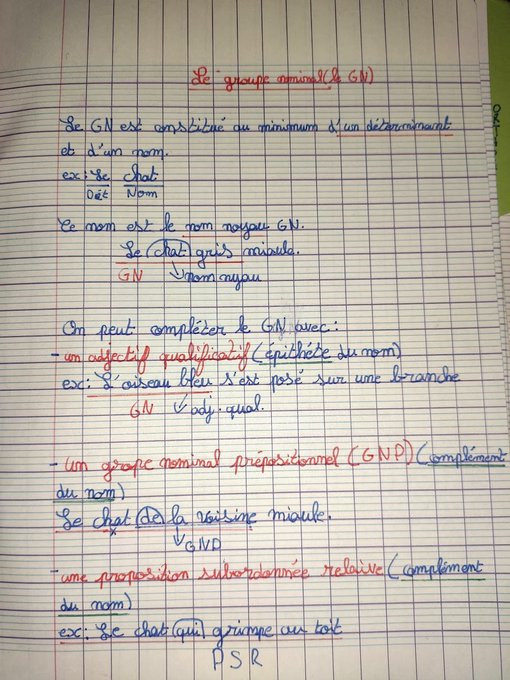 Le groupe nominal (le GN)
Le GN est constitué au minimum d'un déterminant
et d'un nom.
ex: Le chat
Dét Nom
Ce nom est le nom noyau GN.
Le chat gris miaule.
GN nom nyau
On peut compléter le GN avec:
- un adjectif qualificatif (épithète du nom)
ex: L'oiseau bleu s'est posé sur une branche
GN adj. qual.
- un grope nominal prépositionnel (GNP) (complément
du nom)
Le chat de la voisine miaule.
GND
- une proposition subordonnée relaive (complément
du nom)
ex: Le chat qui grimpe au toit
PSR